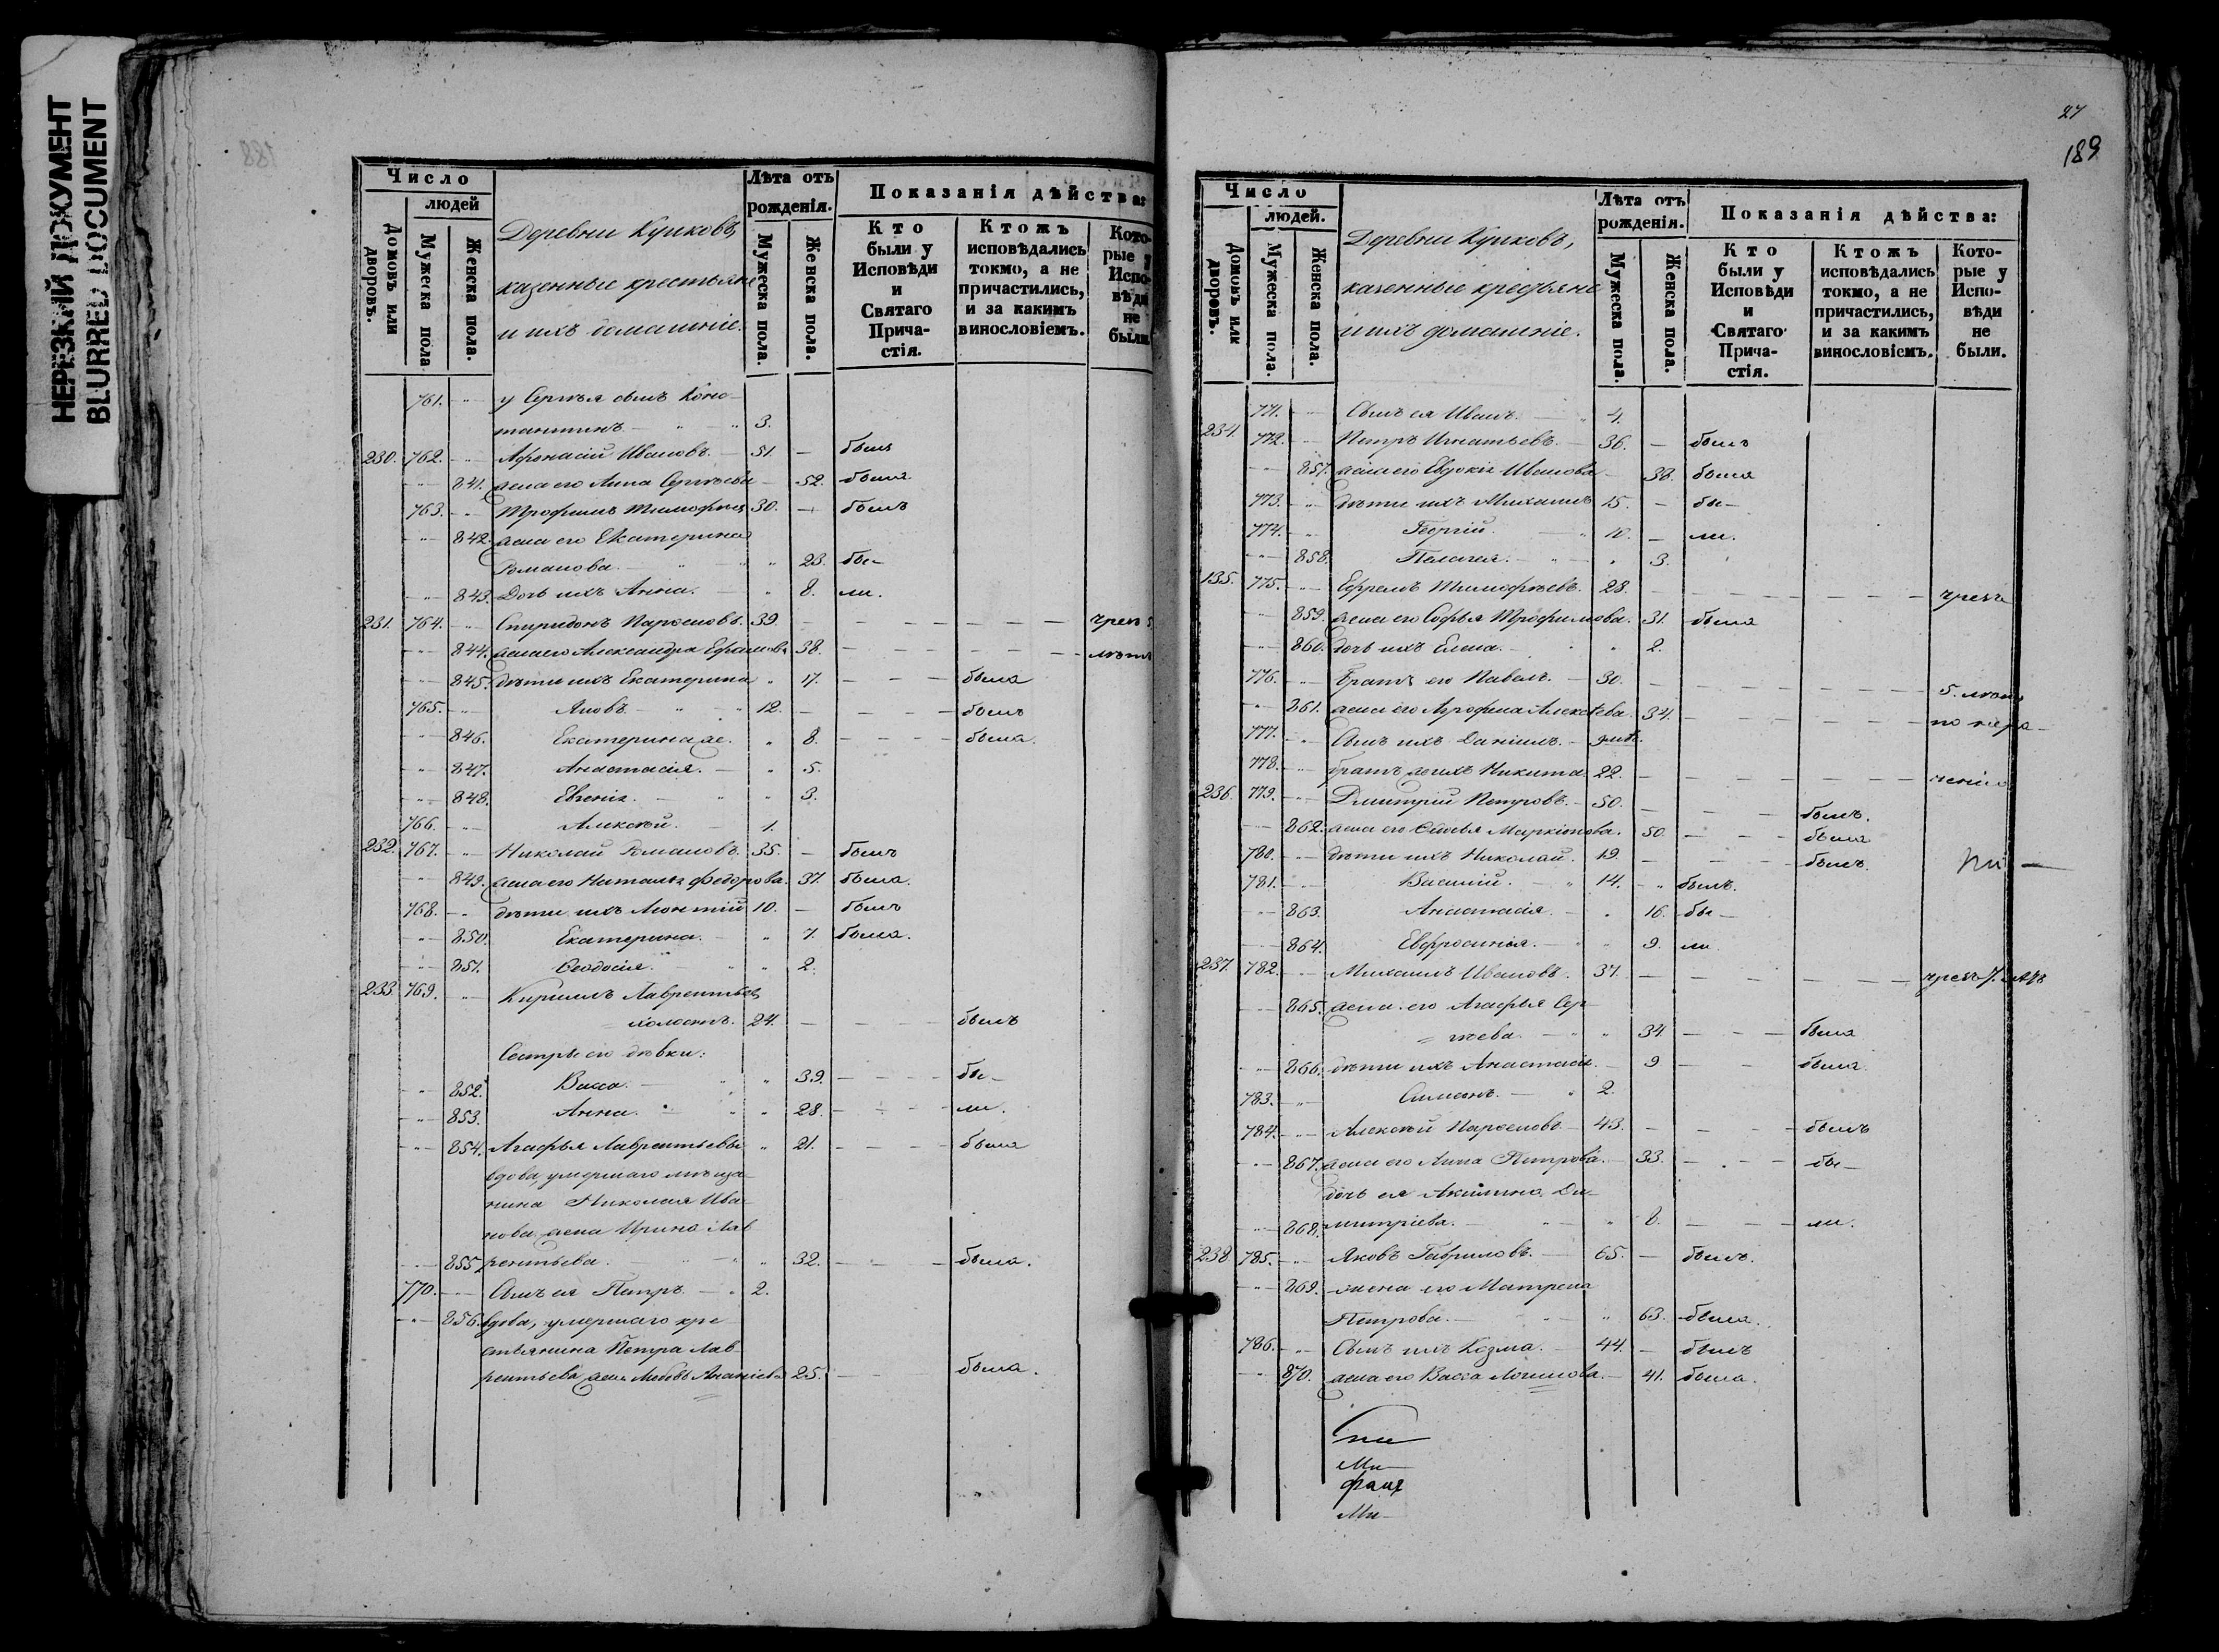 НЕРЕЗКИЙ ДОКУМЕНТ
BLURRED DOCUMENT
188
Число
людей
Домовъ или дворовъ.
Мужеска пола
Женска пола.
Деревни Купковъ,
казенные крестьяне
и ихъ домашніе.
Лѣта отъ рожденія.
Мужеска пола.
Женска пола.
Показанія дѣйства:
Кто были у Исповѣди и Святаго Прича-стія.
Ктожъ исповѣдались токмо, а не причастились, и за какимъ винословіемъ.
Кото-рые у Испо-вѣди не были
761. у Сергѣя сынъ Конс-
тантинъ 3.
230. 762. Афонасій Ивановъ 51. — былъ
841. жена его Анна Сергѣева 52. была
763. Трофимъ Тимофеев 30. — былъ
842. жена его Екатерина
Романова. 23. бы-
843. Дочь ихъ Анна. 8. ли.
231. 764. Спиридонъ Парѳеновъ. 39. чрез 5.
844. жена его Александра Ефимова 38. лѣтъ
845. дѣти ихъ Екатерина 17. была
765. Яковъ 12. былъ
846. Екатерина же. 8. была.
847. Анастасія. 5.
848. Евгенія. 3.
766. Алексѣй. 1.
232. 767. Николай Романовъ. 35. — былъ
849. жена его Наталья Федорова. 37. была.
768. дѣти ихъ Леонтій 10. — былъ
850. Екатерина. 7. была.
851. Ѳеодосія. 2.
233. 769. Кириллъ Лаврентьев
холостъ. 24. былъ
Сестры его дѣвки:
852. Васса. 39. бы-
853. Анна. 28. ли.
854. Агафья Лаврентьевы 21. была
вдова, умершаго мѣща-
нина Николая Ива-
нова жена Ирина Лав
855. рентьева. 32. была.
770. Сынъ ея Петръ 2.
856. вдова, умершаго кре
стьянина Петра Лав-
рентьева жена Любовь Ананіева 25. была.
27
189
Число
людей.
Домовъ или дворовъ.
Мужеска пола.
Женска пола.
Деревни Купковъ,
казенные крестьяне
и ихъ домашніе.
Лѣта отъ рожденія.
Мужеска пола.
Женска пола.
Показанія дѣйства:
Кто были у Исповѣди и Святаго Прича-стія.
Ктожъ исповѣдались токмо, а не причастились, и за какимъ винословіемъ.
Кото-рые у Испо-вѣди не были.
771. Сынъ ея Иванъ. 4.
234. 772. Петръ Игнатьевъ. 36. — былъ
857. жена его Евдокія Иванова 38. была
773. дѣти ихъ Михаилъ 15. — бы-
774. Георгій. 10. — ли.
858. Пелагея. 3.
135. 775. Ефремъ Тимофѣевъ. 28. чрезъ
859. жена его Софья Трофимова. 31. была
860. дочь ихъ Елена. 2.
776. Братъ его Павелъ. 30. 5. лѣтъ
861. жена его Агрофена Алексѣева. 34. по нера-
777. Сынъ ихъ Даніилъ.
778. братъ же ихъ Никита 22. ченію
236. 779. Дмитрій Петровъ. 50. былъ.
862. жена его Маркіонова. 50. была
780. дѣти ихъ Николай. 19. былъ.
781. Василій. 14. былъ.
863. Анастасія. 16. бы-
864. Евфросинія. 9. ли
237. 782. Михаилъ Ивановъ. 37. чрезъ 7. лѣтъ
865. жена его Агафья Сер-
гѣева. 34. была
866. дѣти ихъ Анастасія. 9 была.
783. Симеонъ. 2.
784. Алексѣй Парѳеновъ 43. былъ
867. жена его Анна Петрова. 33. бы-
дочь ея Акилина Ди-
868. митріева. 8. ли.
238. 785. Яковъ Гавриловъ 65. — былъ.
869. жена его Матрена
Петрова. 63. была.
786. Сынъ ихъ Козма. 44. — былъ
870. жена его Васса Логинова. 41. была.
Ми-
Ми-